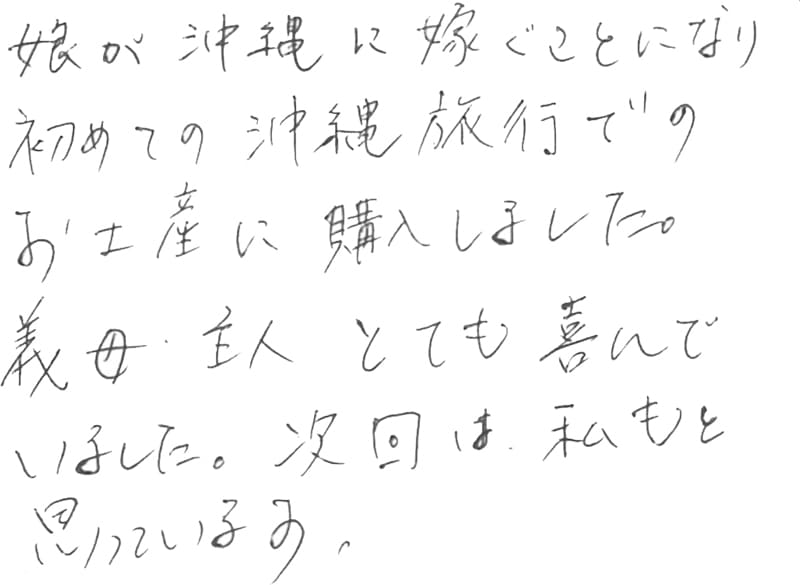 娘が沖縄に嫁ぐことになり
初めての沖縄旅行での
お土産に購入しました。
義母・主人とても喜んで
いました。次回は、私もと
思っています。